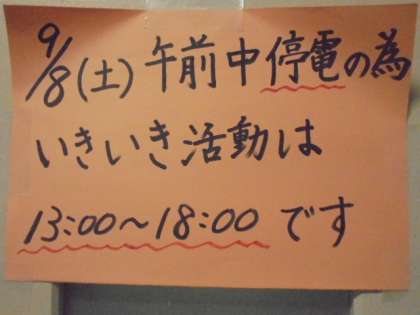 9/8(土)午前中停電の為
いきいき活動は
13:00～18:00です